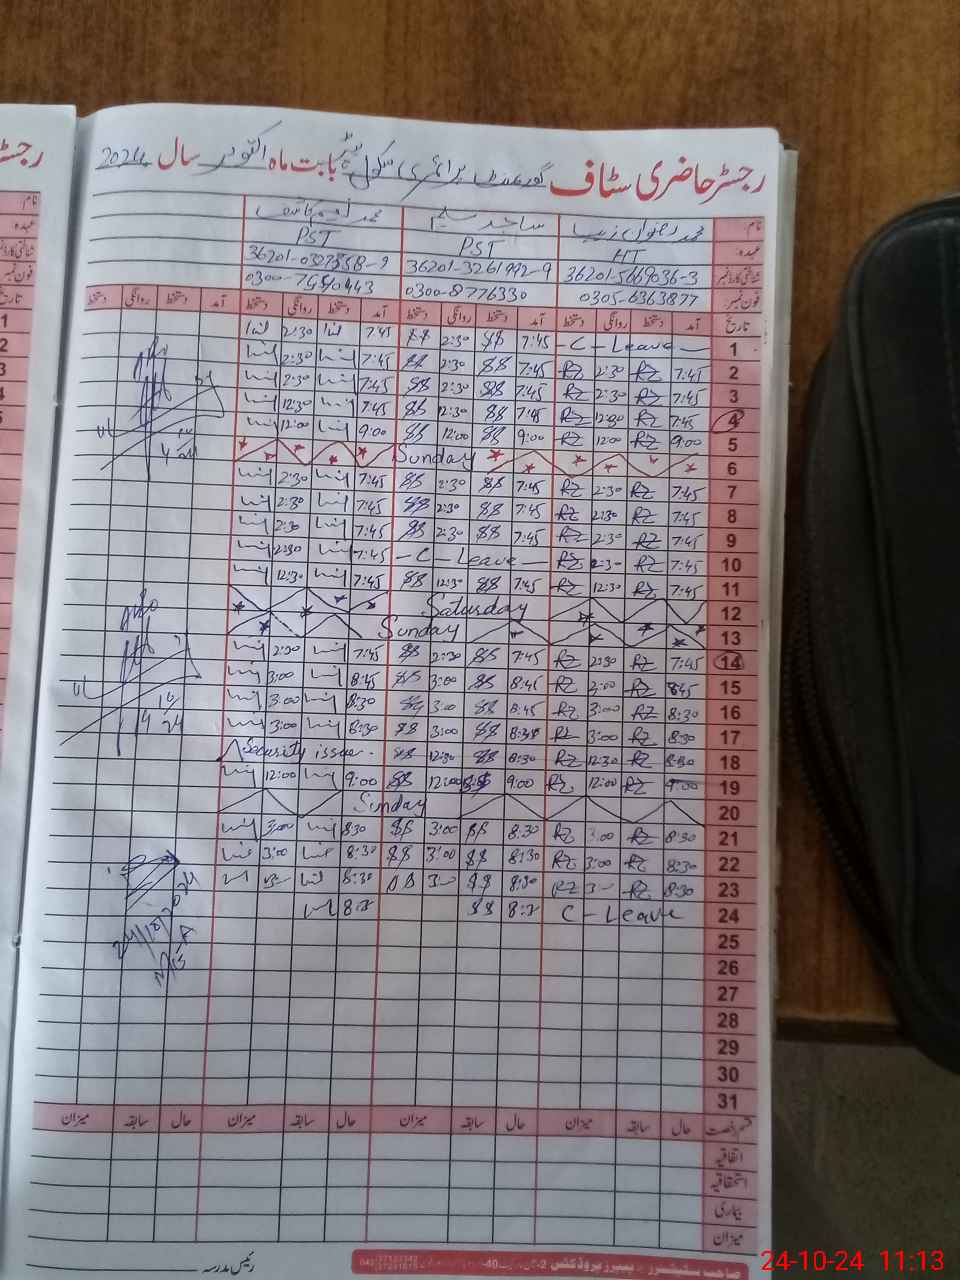 رجسٹر حاضری سٹاف گورنمنٹ پرائمری سکول بابت ماہ اکتوبر سال 2024
نام: ساجد سلیم محمد
عہدہ: HT PST PST
شناختی کارڈ نمبر 36201-5669036-3 36201-3261992-9
فون نمبر 0305-6363877 0300-8776330
تاریخ آمد دستخط روانگی دستخط آمد دستخط روانگی دستخط آمد دستخط روانگی دستخط آمد دستخط روانگی دستخط
1 -C-Leave- 7:45 SS 2:30 SS 7:45 2:30
2 7:45 RZ 2:30 RZ 7:45 SS 2:30 SS 7:45 2:30
3 7:45 RZ 2:30 RZ 7:45 SS 2:30 SS 7:45 2:30
4 7:45 RZ 12:30 RZ 7:45 SS 12:30 SS 7:45 12:30
5 9:00 RZ 12:00 RZ 9:00 SS 12:00 SS 9:00 12:00
6 Sunday
7 7:45 RZ 2:30 RZ 7:45 SS 2:30 SS 7:45 2:30
8 7:45 RZ 2:30 RZ 7:45 SS 2:30 SS 7:45 2:30
9 7:45 RZ 2:30 RZ 7:45 SS 2:30 SS 7:45 2:30
10 7:45 RZ 2:30 RZ -C-Leave- 7:45 2:30
11 7:45 RZ 12:30 RZ 7:45 SS 12:30 SS 7:45 12:30
12 Saturday
13 Sunday
14 7:45 RZ 2:30 RZ 7:45 SS 2:30 SS 7:45 2:30
15 8:45 RZ 3:00 RZ 8:45 SS 3:00 SS 8:45 3:00
16 8:30 RZ 3:00 RZ 8:45 SS 3:00 SS 8:30 3:00
17 8:30 RZ 3:00 RZ SS 3:00 SS 8:30 3:00
18 8:30 RZ 12:30 RZ 8:30 SS 12:30 SS Security issue.
19 9:00 RZ 12:00 RZ 9:00 SS 12:00 SS 9:00 12:00
20 Sunday
21 8:30 RZ 3:00 RZ 8:30 SS 3:00 SS 8:30 3:00
22 8:30 RZ 3:00 RZ 8:30 SS 3:00 SS 8:30 3:00
23 8:30 RZ 3- RZ 8:30 SS 3- 8:30
24 C-Leave SS
25
26
27
28
29
30
31
قسم رخصت حال سابقہ میزان حال سابقہ میزان حال سابقہ میزان حال سابقہ میزان
اتفاقیہ
استحقاقیہ
بیماری
میزان
رئیس مدرسہ
24-10-24 11:13